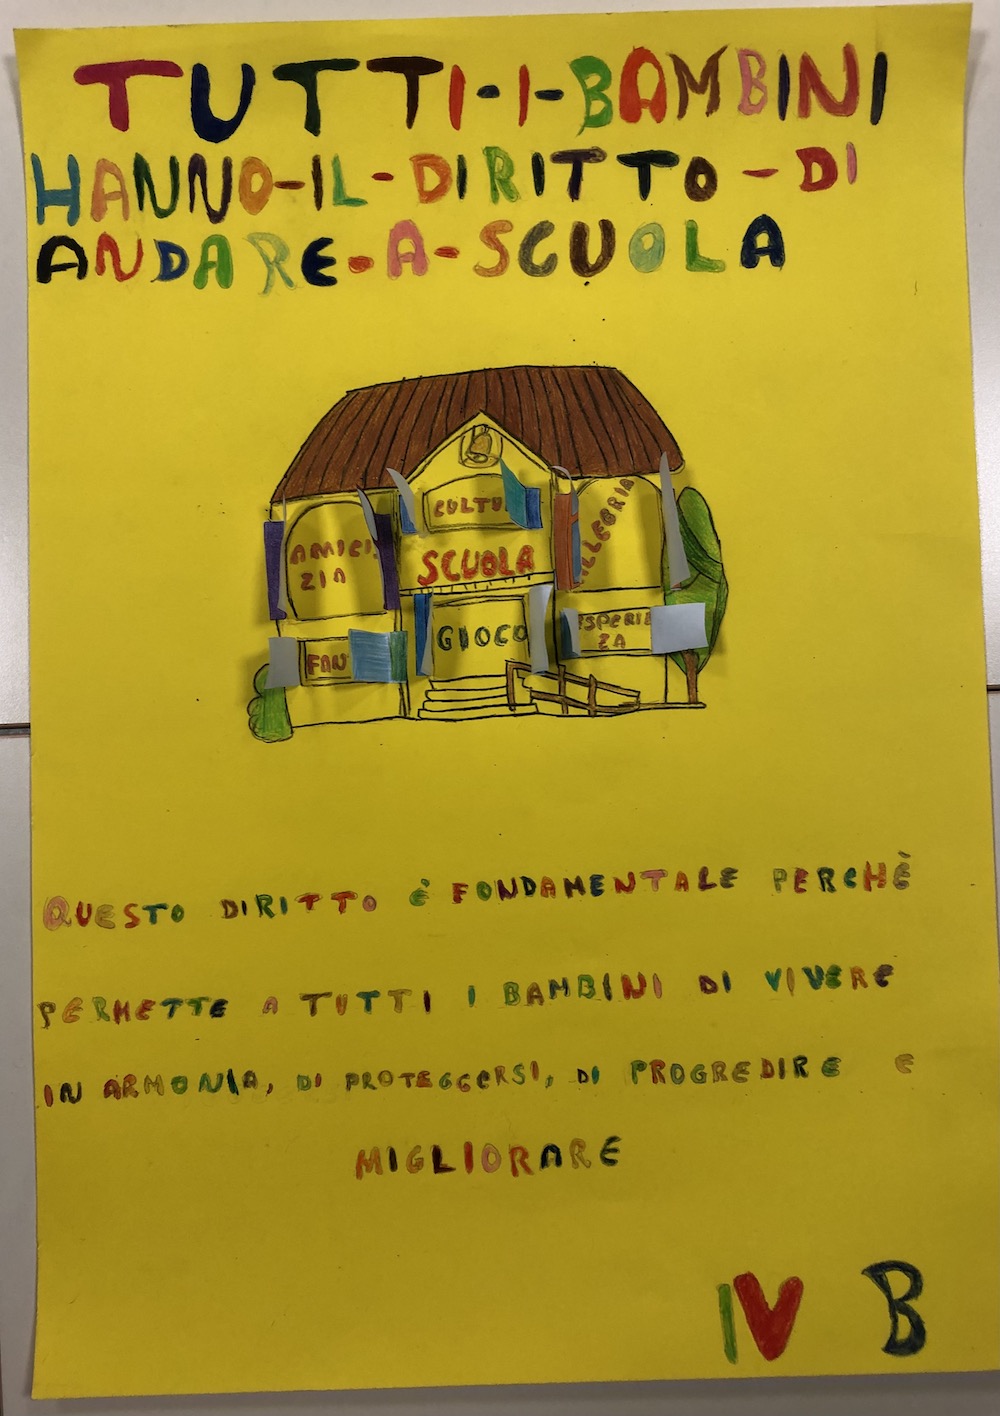 TUTTI-I-BAMBINI
HANNO-IL-DIRITTO-DI
ANDARE-A-SCUOLA
CULTU
AMICI
ZIA
ALLEGRIA
SCUOLA
GIOCO
ESPERIE
ZA
FAN
QUESTO DIRITTO È FONDAMENTALE PERCHÈ
PERMETTE A TUTTI I BAMBINI DI VIVERE
IN ARMONIA, DI PROTEGGERSI, DI PROGREDIRE E
MIGLIORARE
IV B